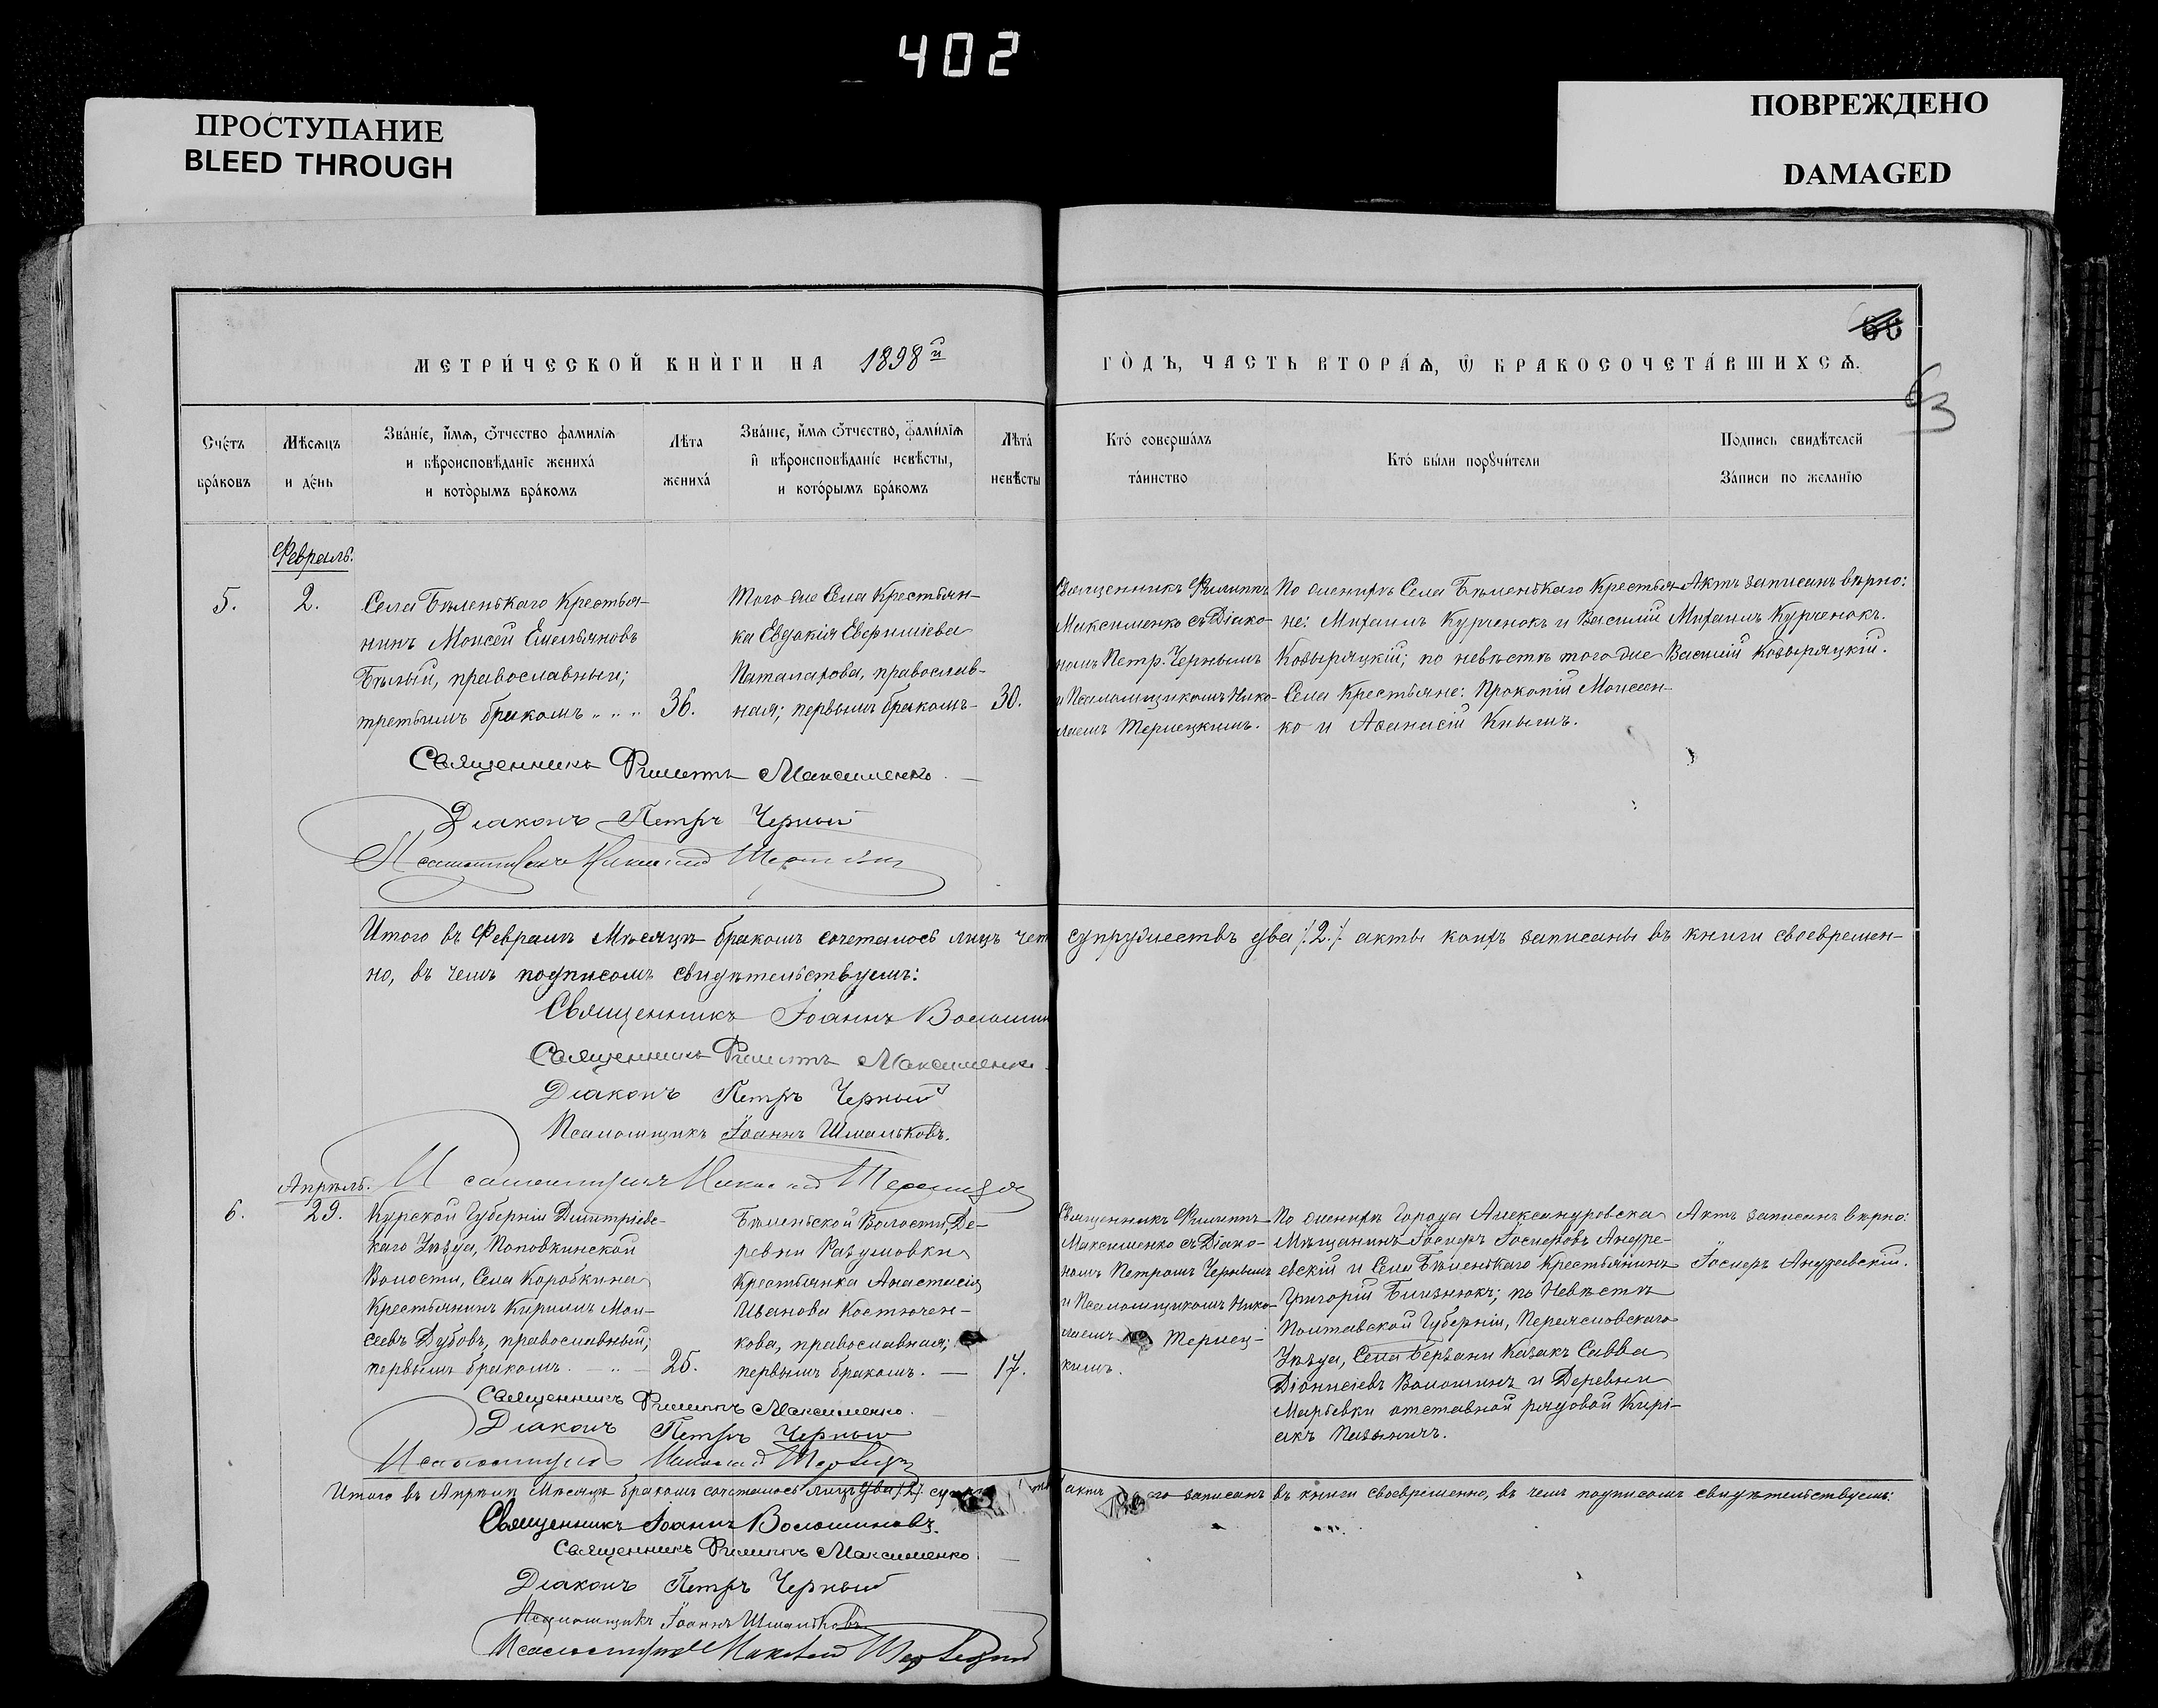 402
ПРОСТУПАНИЕ
BLEED THROUGH
ПОВРЕЖДЕНО
DAMAGED
МЕТРИ́ЧЕСКОЙ КНЍГИ НА 1898й
ГО́ДЪ, ЧАСТЬ ВТОРА́Ѧ, Ѿ БРАКОСОЧЕТА́ВШИХСѦ.
63
Сче́тъ
бра́ковъ
Мѣ́сѧцъ
и де́нь
Зва́нїе, и́мѧ, ѻ́тчество фами́лїѧ
и вѣроисповѣ́данїе жениха́
и кото́рымъ бра́комъ
Лѣ́та
жениха́
Зва́нїе, и́мѧ ѻ́тчество, фами́лїѧ
и вѣроисповѣ́данїе невѣ́сты,
и кото́рымъ бра́комъ
Лѣ́та
невѣ́сты
Кто́ соверша́лъ
та́инство
Кто́ бы́ли порꙋчи́тели
По́дпись свидѣ́телей
За́писи по жела́нїю
Февраль.
5.
2.
Села Бѣленькаго Крестья-
нинъ Моисей Емельяновъ
Бѣлый, православный;
третьимъ бракомъ
36.
Того-же Села Крестьян-
ка Евдокія Евфиміева
Паталахова, православ-
ная; первымъ бракомъ-
30.
Священникъ Филиппъ
Максименко съ Діако-
номъ Петр. Чернымъ
и Псаломщикомъ Нико-
лаемъ Терлецкимъ.
По женихѣ Села Бѣленькаго Крестья-
не: Михаилъ Курченокъ и Василій
Козыряцкій; по невѣстѣ того-же
Села Крестьяне: Прокопій Моисеен-
ко и Аѳанасій Кнышъ.
Актъ записанъ вѣрно:
Михаилъ Курченокъ.
Василій Козыряцкій.
Священникъ Филиппъ Максименко.
Діаконъ Петръ Черный
Псаломщикъ Николай Терлецкій
Итого въ Февралѣ Мѣсяцѣ бракомъ сочеталось лицъ чет
супружествъ два /.2./. акты коихъ записаны въ книги своевремен-
но, въ чемъ подписомъ свидѣтельствуемъ:
Священникъ Іоаннъ Волошин
Священникъ Филиппъ Максименко.
Діаконъ Петръ Черный
Псаломщикъ Іоаннъ Шмальковъ.
Псаломщикъ Николай Терлецкій
Апрѣль.
6.
29.
Курской Губерніи Дмитріевс-
каго Уѣзда, Поповкинской
Волости, Села Коробкина
Крестьянинъ Кириллъ Мои-
сеевъ Дубовъ, православный;
первымъ бракомъ.
25.
Бѣленьской Волости, Де-
ревни Разумовки
Крестьянка Анастасія
Иванова Костючен-
кова, православная;
первымъ бракомъ.
17.
Священникъ Филиппъ
Максименко съ Діако-
номъ Петромъ Чернымъ
и Псаломщикомъ Нико-
лаемъ Терлец-
кимъ.
По женихѣ Города Александровска
Мѣщанинъ Іосифъ Іосифовъ Андре-
евскій и Села Бѣленькаго Крестьянинъ
Григорій Близнюкъ; по Невѣстѣ
Полтавской Губерніи, Переясловскаго
Уѣзда, Села Березани Казакъ Савва
Діонисіевъ Волошинъ и Деревни
Марьевки отставной рядовой Кирі-
акъ
Актъ записанъ вѣрно:
Іосифъ Андреевскій.
Священникъ Филиппъ Максименко.
Діаконъ Петръ Черный
Псаломщикъ Николай Терлецкій
Итого въ Апрѣлѣ Мѣсяцѣ бракомъ сочеталось лицъ два /2/
актъ его записанъ въ книги своевременно, въ чемъ подписомъ свидѣтельствуемъ:
Священникъ Іоаннъ Волошиновъ.
Священникъ Филиппъ Максименко
Діаконъ Петръ Черный
Псаломщикъ Іоаннъ Шмальковъ
Псаломщикъ Николай Терлецкій